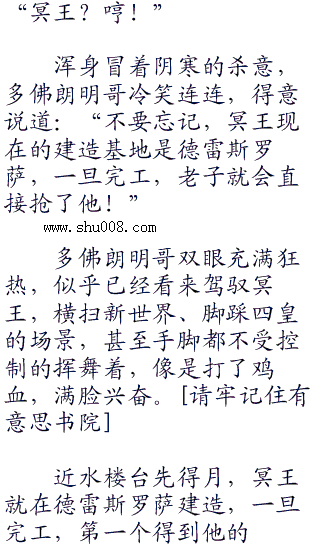 “冥王？哼！”
浑身冒着阴寒的杀意，
多佛朗明哥冷笑连连，得意
说道：“不要忘记，冥王现
在的建造基地是德雷斯罗
萨，一旦完工，老子就会直
接抢了他！”
www.shu008.com
多佛朗明哥双眼充满狂
热，似乎已经看来驾驭冥
王，横扫新世界、脚踩四皇
的场景，甚至手脚都不受控
制的挥舞着，像是打了鸡
血，满脸兴奋。[请牢记住有
意思书院]
近水楼台先得月，冥王
就在德雷斯罗萨建造，一旦
完工，第一个得到他的